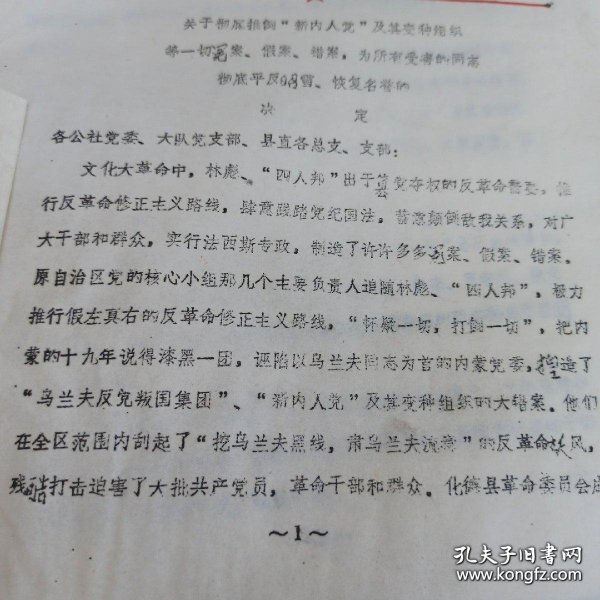 关于彻底推倒“新内人党”及其变种组织
等一切冤案、假案、错案，为所有受害的同志
彻底平反昭雪、恢复名誉的
决 定
各公社党委、大队党支部、县直各总支、支部：
文化大革命中，林彪、“四人邦”出于篡党夺权的反革命需要，推
行反革命修正主义路线，肆意践踏党纪国法，蓄意颠倒敌我关系，对广
大干部和群众，实行法西斯专政，制造了许许多多冤案、假案、错案。
原自治区党的核心小组那几个主要负责人追随林彪、“四人邦”，极力
推行假左真右的反革命修正主义路线，“怀疑一切，打倒一切”，把内
蒙的十九年说得漆黑一团，诬陷以乌兰夫同志为首的内蒙党委，捏造了
“乌兰夫反党叛国集团”、“新内人党”及其变种组织的大错案。他们
在全区范围内刮起了“挖乌兰夫黑线，肃乌兰夫流毒”的反革命妖风，
残酷打击迫害了大批共产党员，革命干部和群众。化德县革命委员会
～1～
孔夫子旧书网
www.kongfz.com